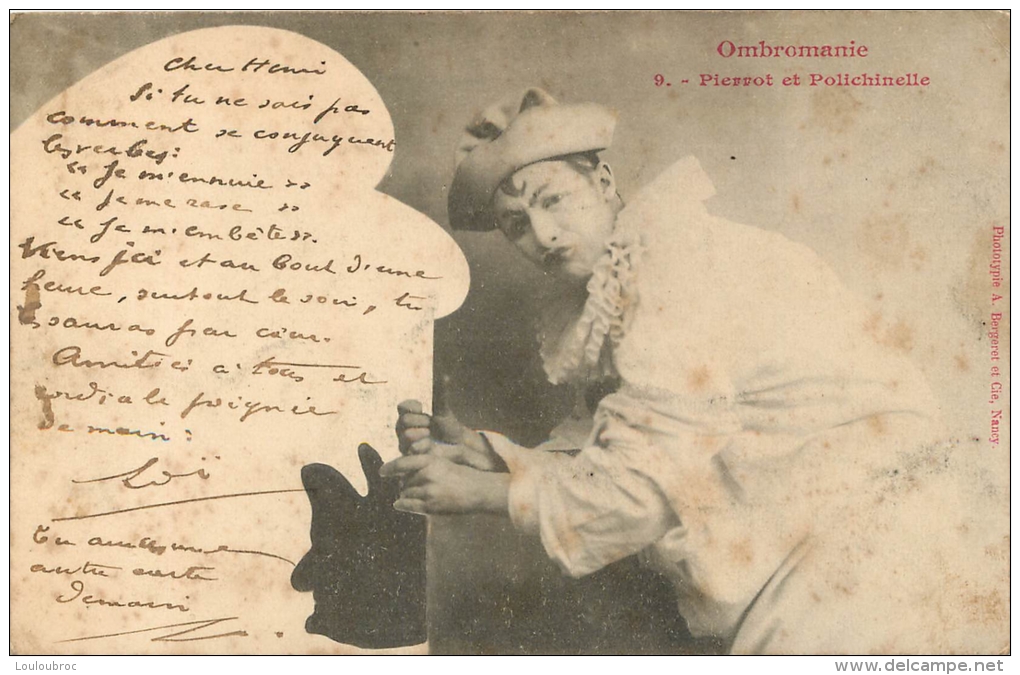 Ombromanie
9. - Pierrot et Polichinelle
Cher Henri
Si tu ne sais pas
comment se conjuguent
les verbes:
« Je m'ennuie »
« Je me rase »
« Je m'embête ».
Viens ici et au bout d'une
heure, surtout le soir, tu
les sauras par cœur.
Amitiés à tous et
cordiale poignée
de main:
Tu auras une
autre carte
demain
Phototypie A. Bergeret et Cie, Nancy.
Louloubroc
delcampe.net